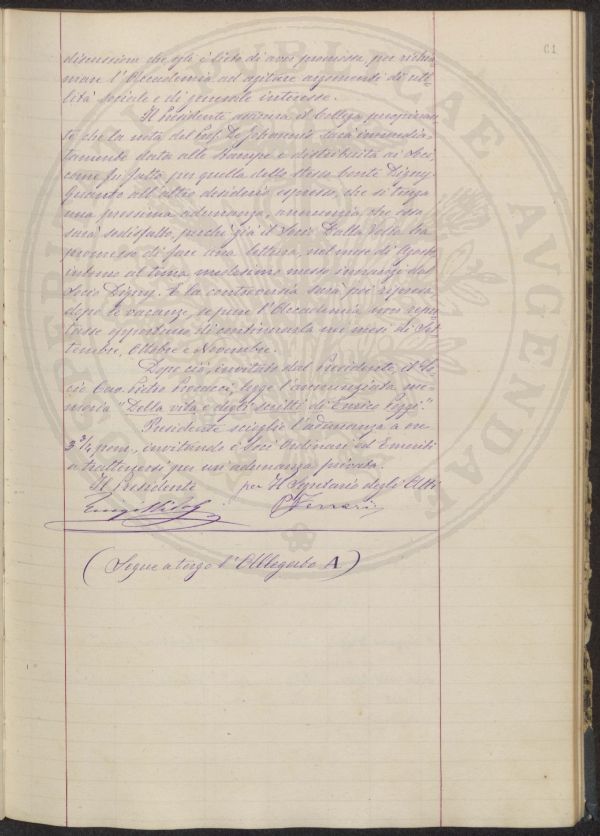 61
discussione che egli è lieto di aver promossa, per richia
mare l'Accademia ad agitare argomenti di uti-
lità sociale e di generale interesse.
Il Presidente assicura il Collega proponen
te che la nota del Prof. De Johannis sarà immedia-
tamente data alle stampe e distribuita ai Soci,
come fu fatto per quella dello stesso Conte Digny.
Quanto all'altro desiderio espresso, che si tenga
una prossima adunanza, annunzia, che esso
sarà sodisfatto, perchè già il Socio Dalla Volta ha
promesso di fare una lettura, nel mese di Agosto,
intorno al tema medesimo messo innanzi dal
Socio Digny. E la controversia sarà poi ripresa
dopo le vacanze, se pure l'Accademia non repu
tasse opportuno di continuarla nei mesi di Set
tembre, Ottobre e Novembre.
Dopo ciò, invitato dal Presidente, il So-
cio Cav. Pietro legge l'annunziata me-
moria "Della vita e degli scritti di Enrico Poggi".
Presidente scioglie l'adunanza a ore
3 3/4 pom., invitando i Soci Ordinari ed Emeriti
a trattenersi per un'adunanza privata.
Il Presidente per Il Segretario degli Atti
P. Ferrari
(Segue a tergo l'Allegato A)